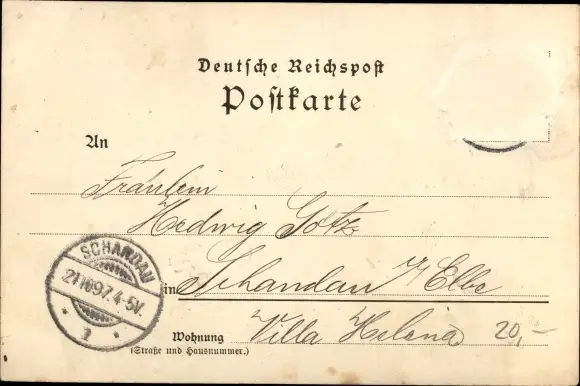 Deutsche Reichspost
Postkarte
An
Fräulein
Hedwig Götz
in Schandau a/ Elbe
Wohnung Villa Helena 20,-
(Straße und Hausnummer.)
SCHANDAU
21.10.97. 4-5V.
1